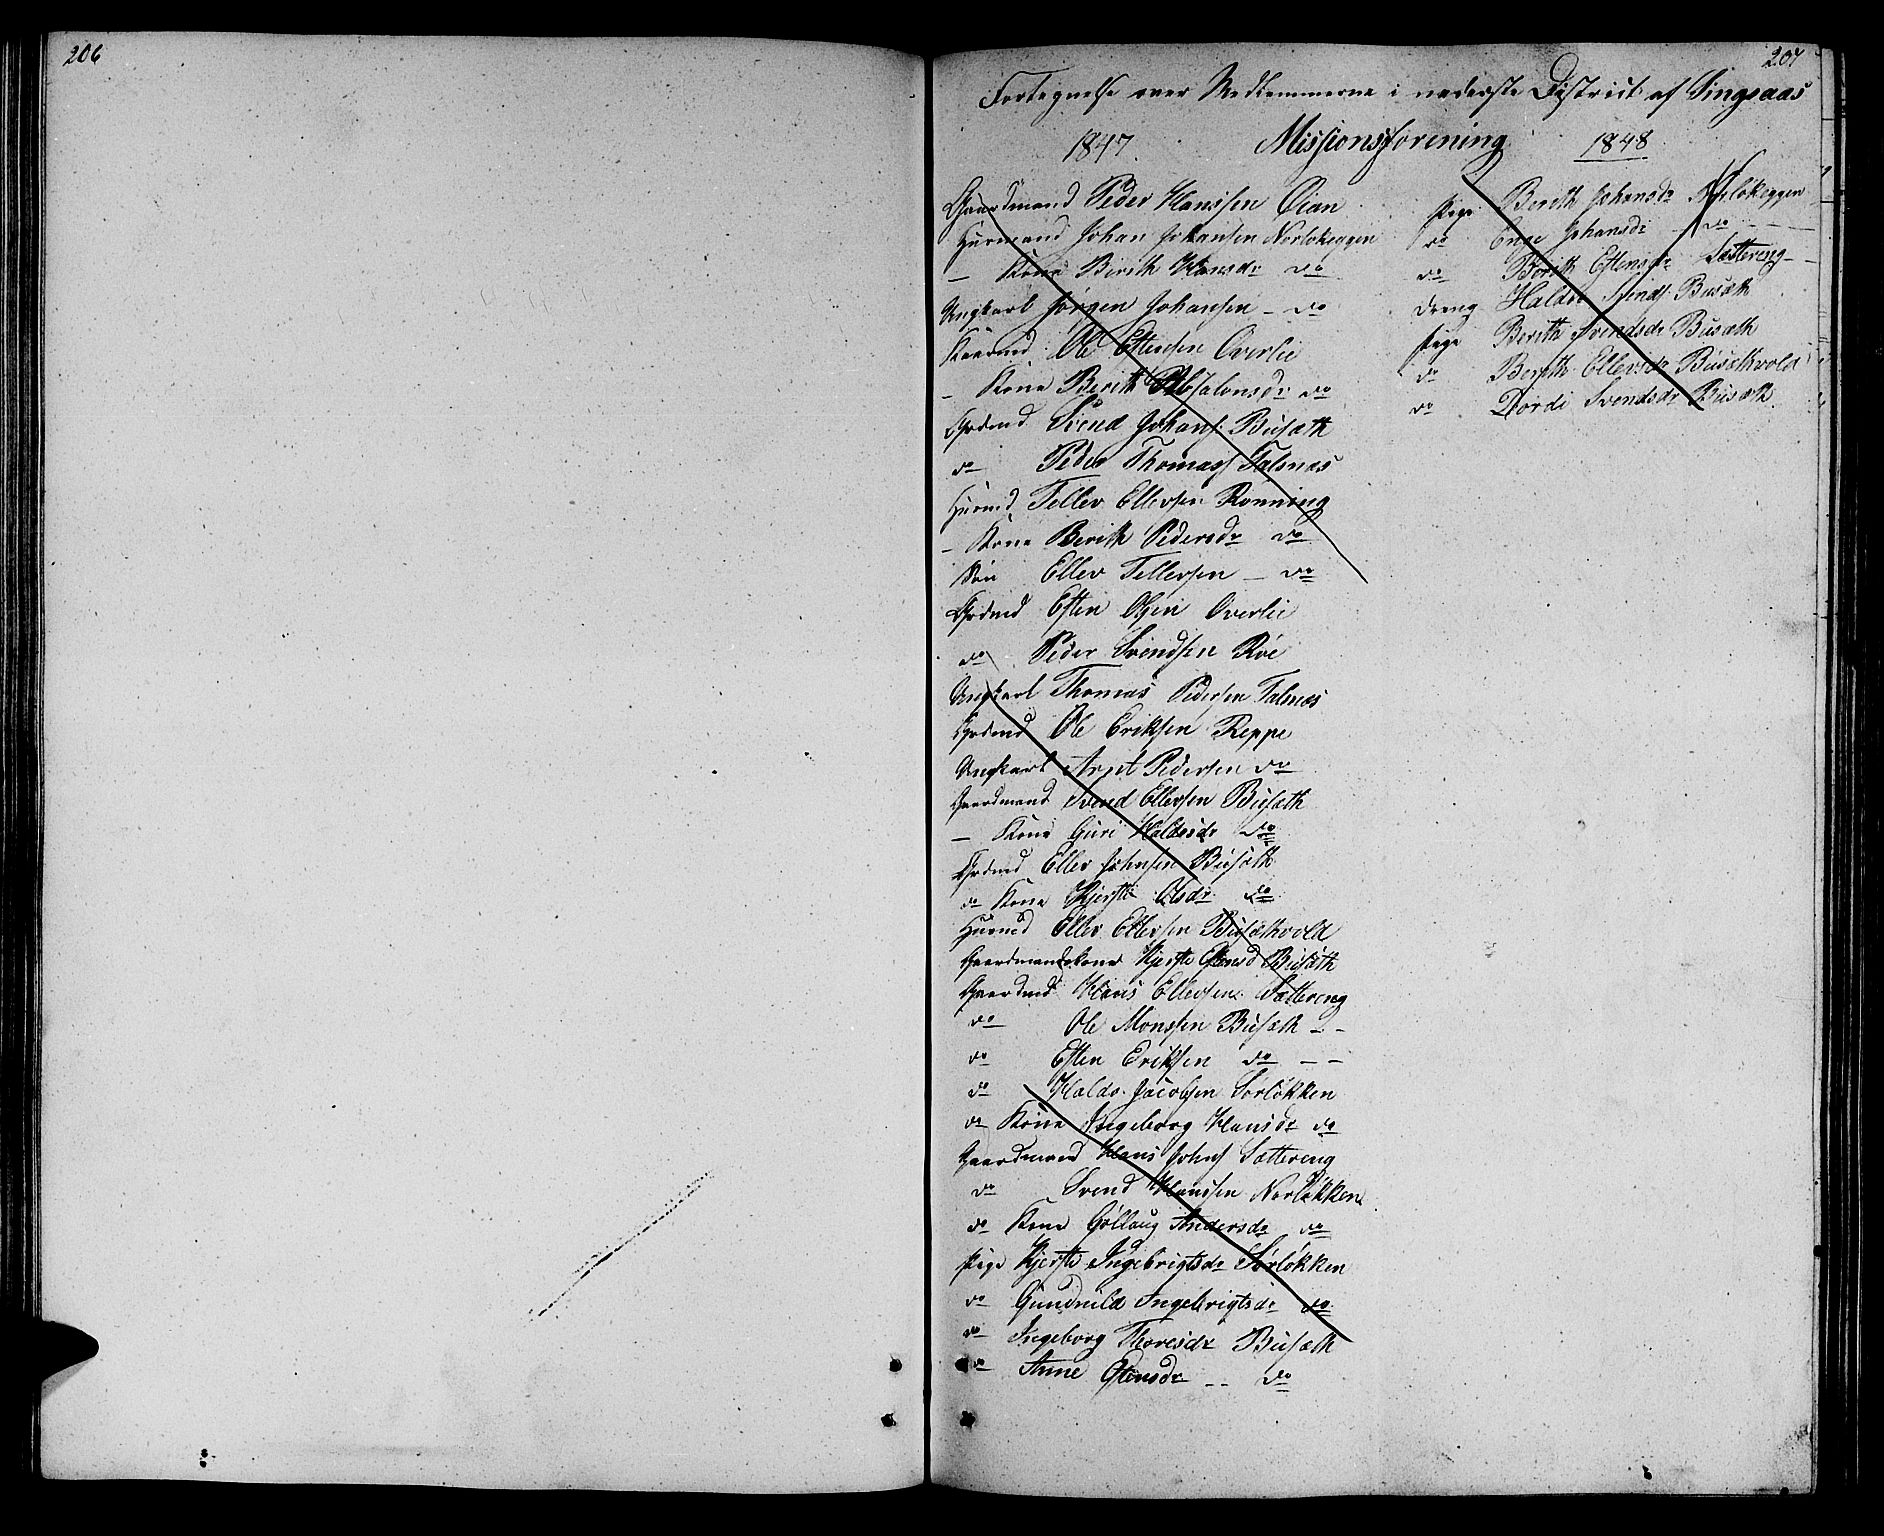 206
207
Fortegnelse over Medlemmerne i nederste District af Singsaas
Missionsforening
1847
Gaardmand Peder Hanssen Øian
Huusmand Johan Johansen Norløkeggen
- Kone Berith Hansdr do
Ungkarl Jørgen Johansen - do
Ole Estensen Overlie
- Kone Berith Absalonsdr do
Grdmd Svend Johans: Busæth
do Peder Thomass Talsnæs
Husmd Tellev Ellevsen Rønning
- Kone Berith Pedersdr do
Søn Ellev Tellevsen - do
Grdmd Esten Olsen Overlie
do Peder Svendsen Roe
Ungkarl Thomas Pedersen Talsnæs
Grdmd Ole Eriksen Reppe
Ungkarl Arnt Pedersen do
Gaardmand Svend Ellevsen Busæth
- Kone Guri Haldosdr do
Grdmd Ellev Johnsen Busæth
do Kone Kjersti Olsdr do
Husmd Ellev Ellevsen Busæthvold
Gaardmandskone Kjersti Estensd Busæth
Gaardmd Hans Ellevsen Sættereng
do Ole Monssen Busæth - -
do Esten Eriksen do - -
do Haldo Jacobsen Sørløkken
do Kone Ingeborg Hansdr do
Gaardmand Hans Johns Sættereng
do Svend Hanssen Norløkken
do Kone Gøllaug Andersdr do
Pige Kjersti Ingebrigtsdr Sørløkken
do Gundnild Ingebrigtsdr do
do Ingeborg Thoresdr Busæth
do Anne Estensdr - - do
1848
Pige Berith Johansdr Norløkeggen
do Johansdr - do - -
do Berith Estensdr Sættereng - -
Dreng Haldo Svends: Busæth
Pige Berith Svendsdr Busæth
do Berith Ellevsdr Busæthvold
do Dordi Svendsdr Busæth